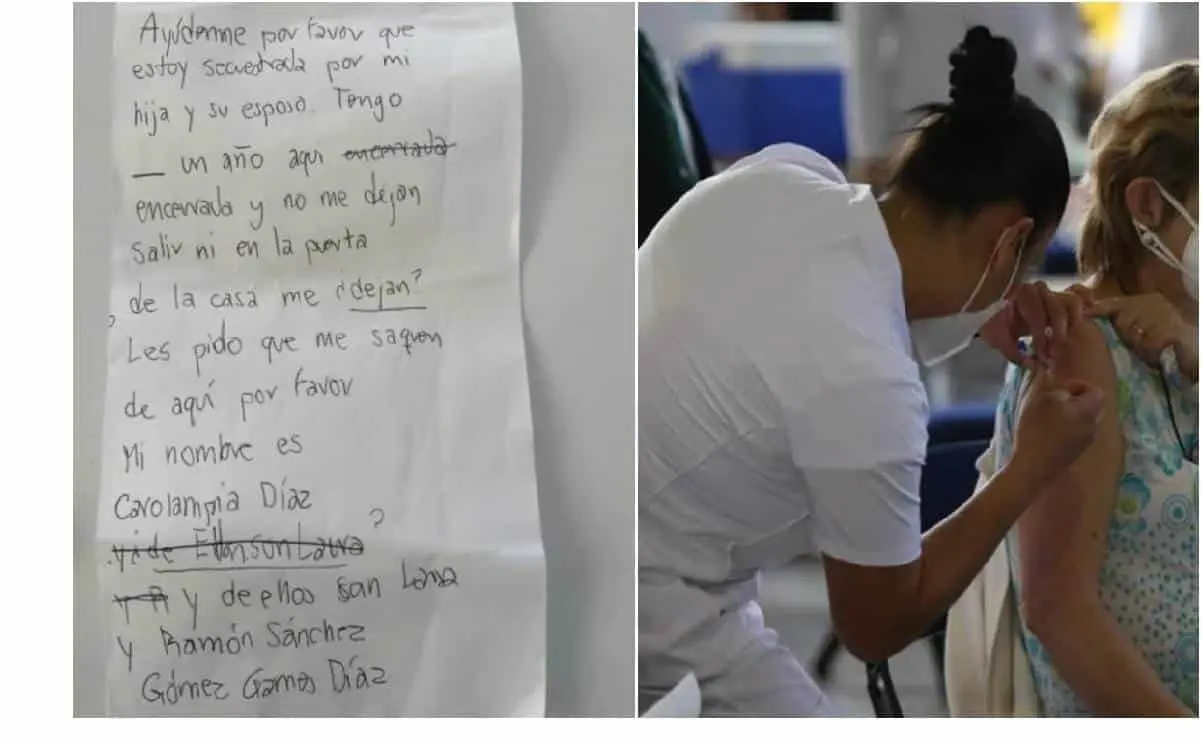 Ayúdenme por favor que
estoy secuestrada por mi
hija y su esposo. Tengo
— un año aqui encerrada
encerrada y no me dejan
salir ni en la puerta
de la casa me ¿dejan?
Les pido que me saquen
de aquí por favor
Mi nombre es
Carolampia Díaz
?
y de ellos son
y Ramón Sánchez
Gómez Gamos Díaz